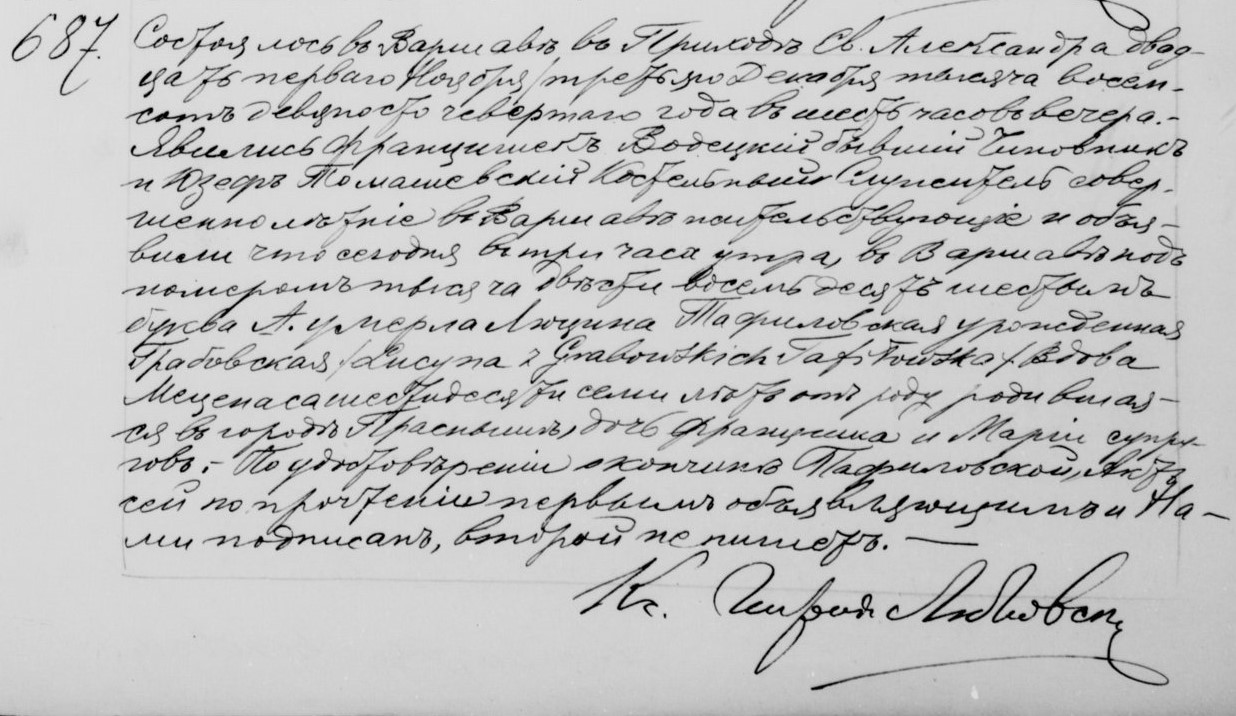 687. Состоялось въ Варшавѣ въ Приходѣ Св. Александра двад-
цать перваго Ноября / третьяго Декабря тысяча восем-
сотъ девяносто четвертаго года въ шесть часовъ вечера.-
Явились Францишекъ Водецкій бывшій Чиновникъ
и Юзефъ Томашевскій Костельный Служитель совер-
шеннолѣтніе въ Варшавѣ жительствующіе и объя-
вили что сегодня въ три часа утра, въ Варшавѣ подъ
номеромъ тысяча двѣсти восемьдесятъ шестымъ
буква А. умерла Люцина Тафиловская урожденная
Грабовская /Lucyna z Grabowskich Tafiłowska/ Вдова
Меценаса шестидесяти семи лѣтъ отъ роду родившая-
ся въ городѣ Праснышѣ, дочь Францишка и Маріи супру-
говъ.- По удостовѣреніи о кончинѣ Тафиловской, Актъ
сей по прочтеніи первымъ объявляющимъ и На-
ми подписанъ, второй не пишетъ. —
Кс.